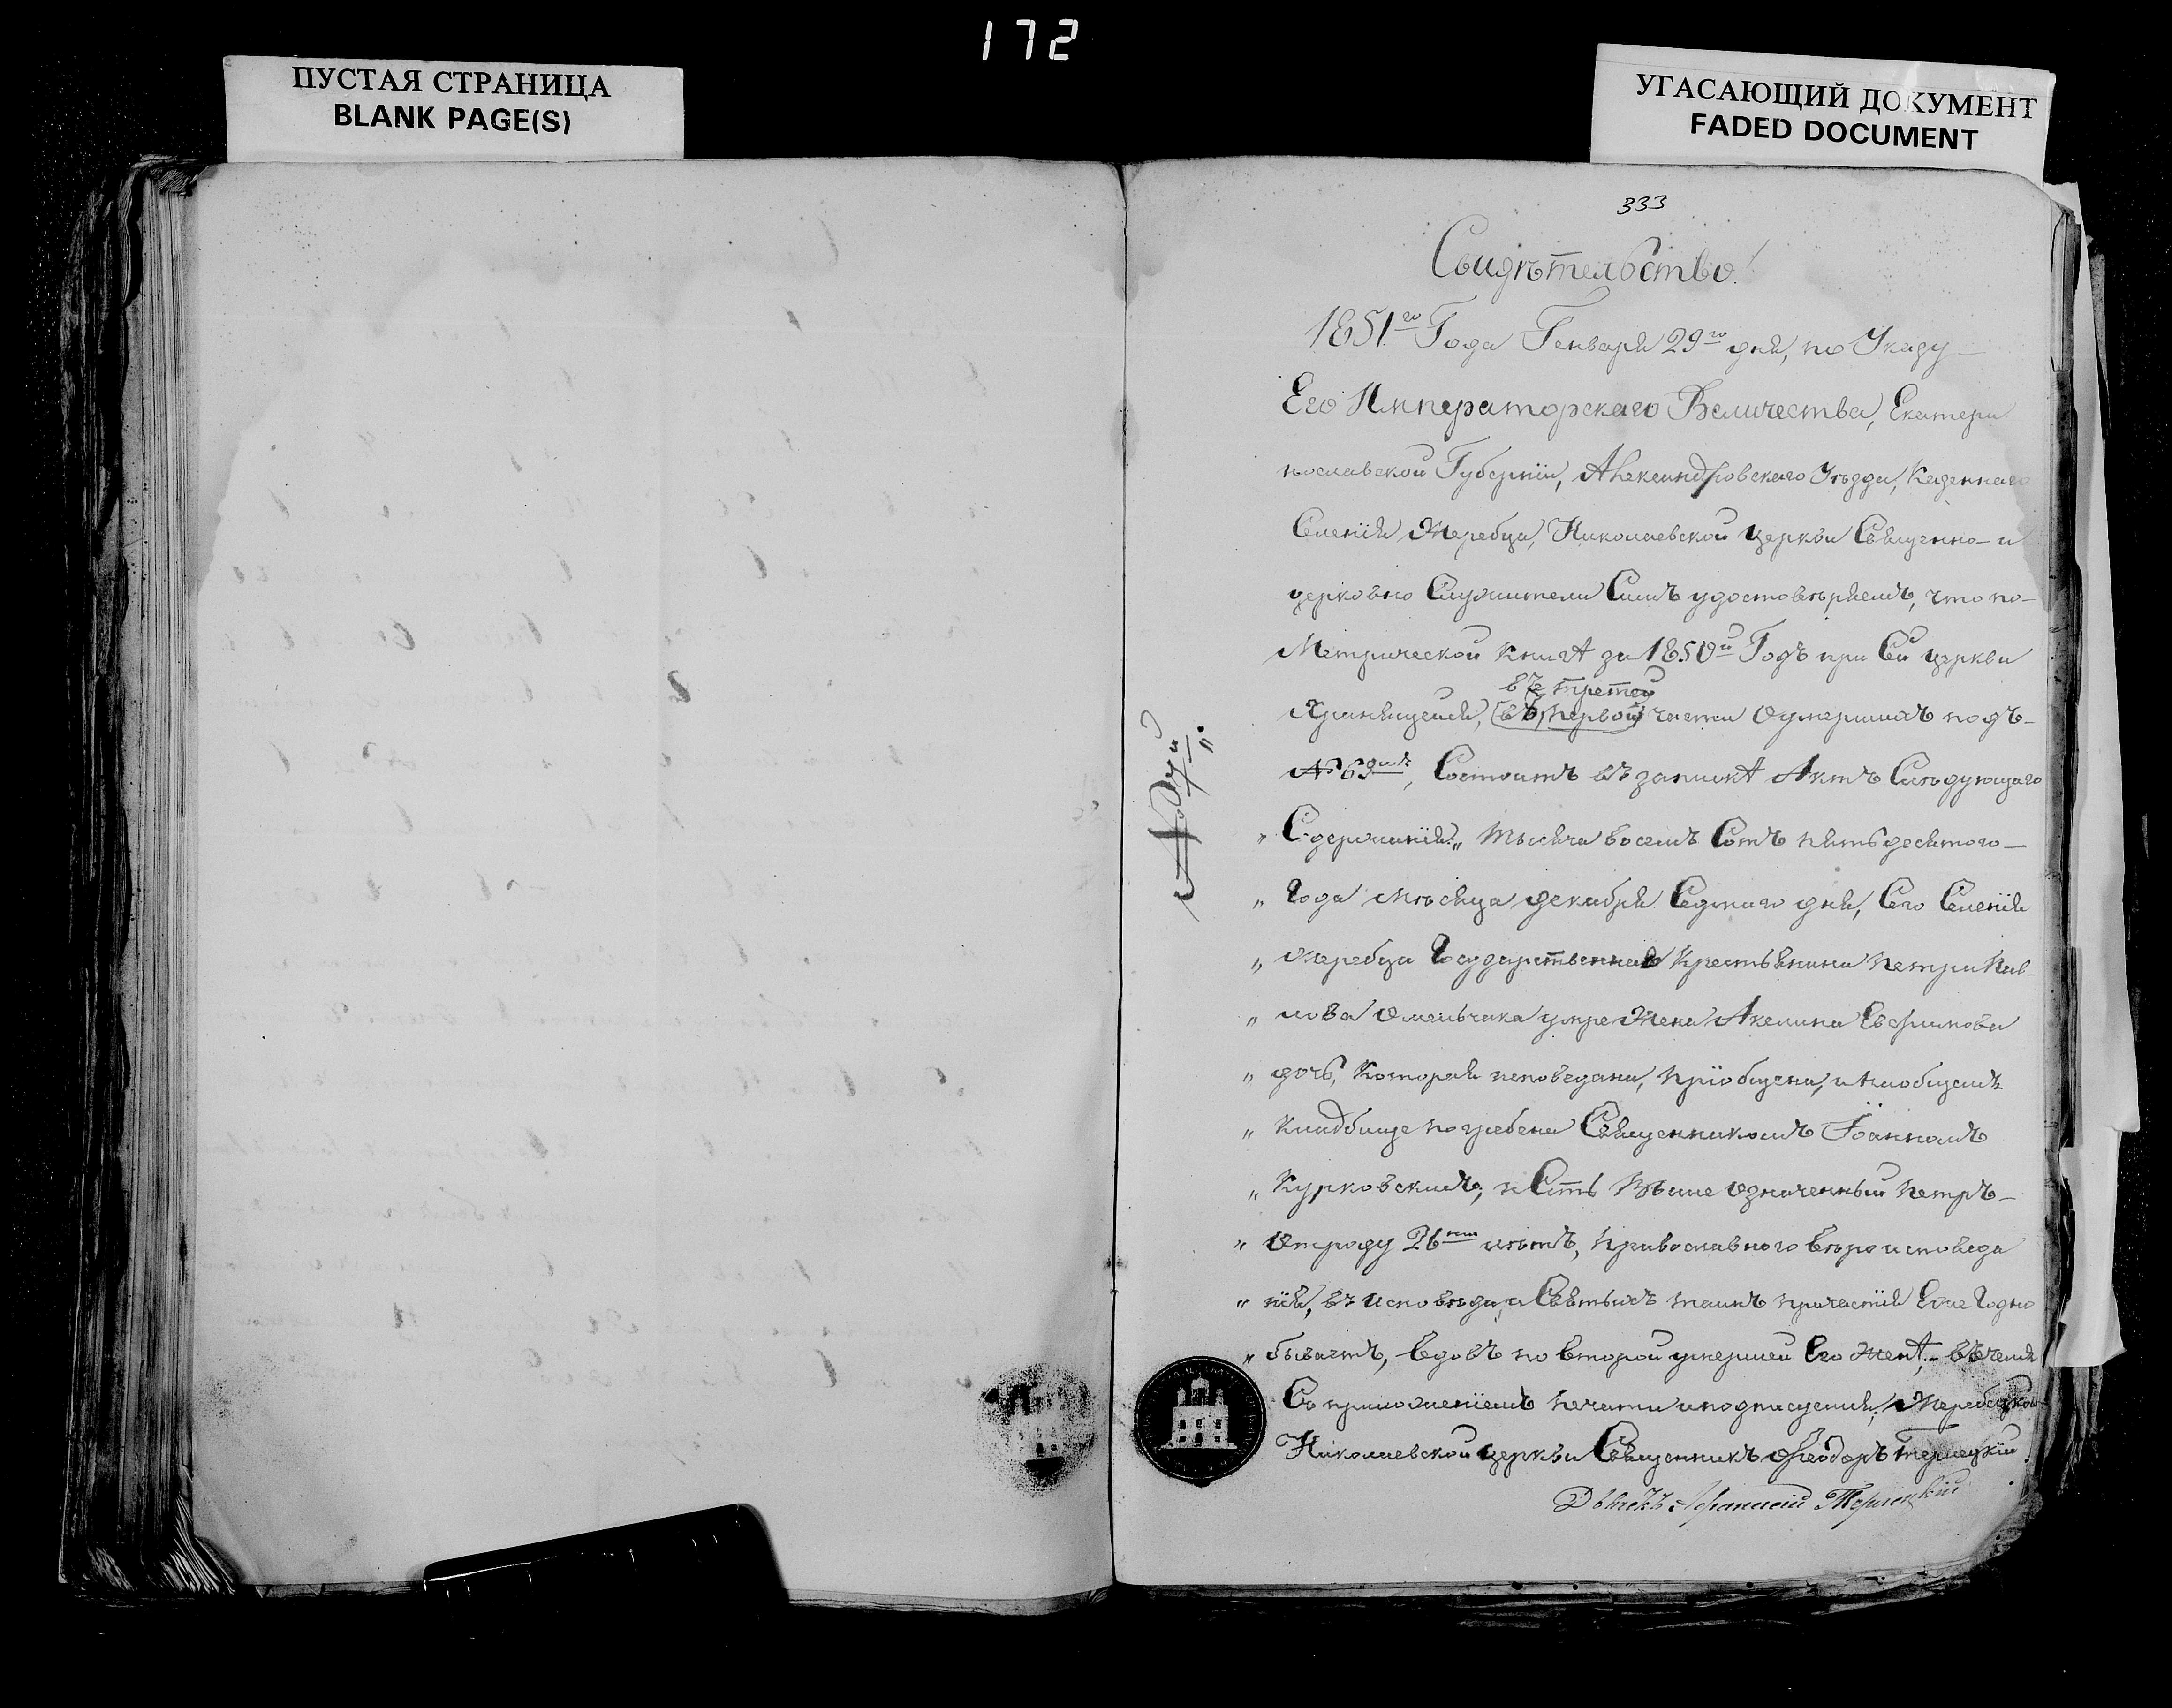 172
ПУСТАЯ СТРАНИЦА
BLANK PAGE(S)
УГАСАЮЩИЙ ДОКУМЕНТ
FADED DOCUMENT
333
Свидѣтельство!
1851го Года Генваря 29го дня, по Указу
Его Императорскаго Величества, Екатери
нославской Губернїи, Александровскаго Уѣзда, Казеннаго
Селенїя Жеребца, Николаевской церкви Священно- и
церковно Служители Симъ удостовѣряемъ, что по-
Метрической книгѣ за 1850й Годъ при Сей церкви
въ третей
Хранящейся, (въ первой) части О умершихъ подъ-
№ 63, Состоитъ въ запискѣ Актъ Слѣдующаго
„ Содержанїя: „ Тысяча восемъ Сотъ пятьдесятого
„ Года Мѣсяца Декабря Седмаго дня, Сего Селенїя
„ Жеребца Государственнаго Крестьянина Петра Пав-
„ лова Омельчика умре Жена Акелина Евфимова
„ дочь, Которая исповедана, прїобщена, и на общемъ
„ Кладбище погребена Священникомъ Іоанномъ
„ Курковскимъ, и Есть Выше означенный Петръ-
„ Отроду 26 лѣтъ, Православного Вѣроисповеда
„ нїя, въ Исповѣди, и Святыхъ таинъ причастїя Еже Годно
„ бываетъ, Вдовъ по второй умершей Его Женѣ; въ чемъ
Съ приложенїемъ печати и подписуемся; Жеребецкой
Николаевской церкви Священникъ Ѳеодоръ Терлецкїй
Дьячекъ Афанасїй Терлецкїй